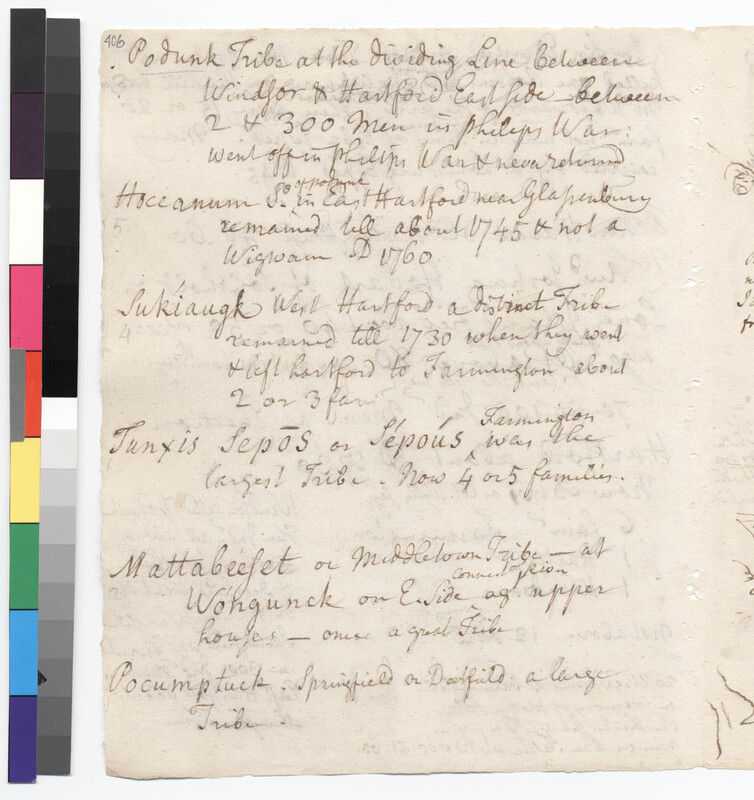 406
Podunk Tribe at the dividing Line between
Windsor & Hartford East side between
2 & 300 Men in philips War:
went off in philips War & neva returned
Hoccanum S. in East Hartford near Glassenbury
So of podunk
remained till about 1745 & not a
Wigwam 1760
Sukiaugk West Hartford a distinct Tribe
remained till 1730 when they went
& left hartford to Farmington, about
2 or 3 fam
Tunxis Sepōs or Sépoús was the
Farmington
largest Tribe. Now 4 or 5 families.
Mattabéeset or Middletown Tribe — at
Wóngunck on E. Side ag upper
houses — once a great Tribe
Pocumptuck. Springfield or Deerfield a large
Tribe.